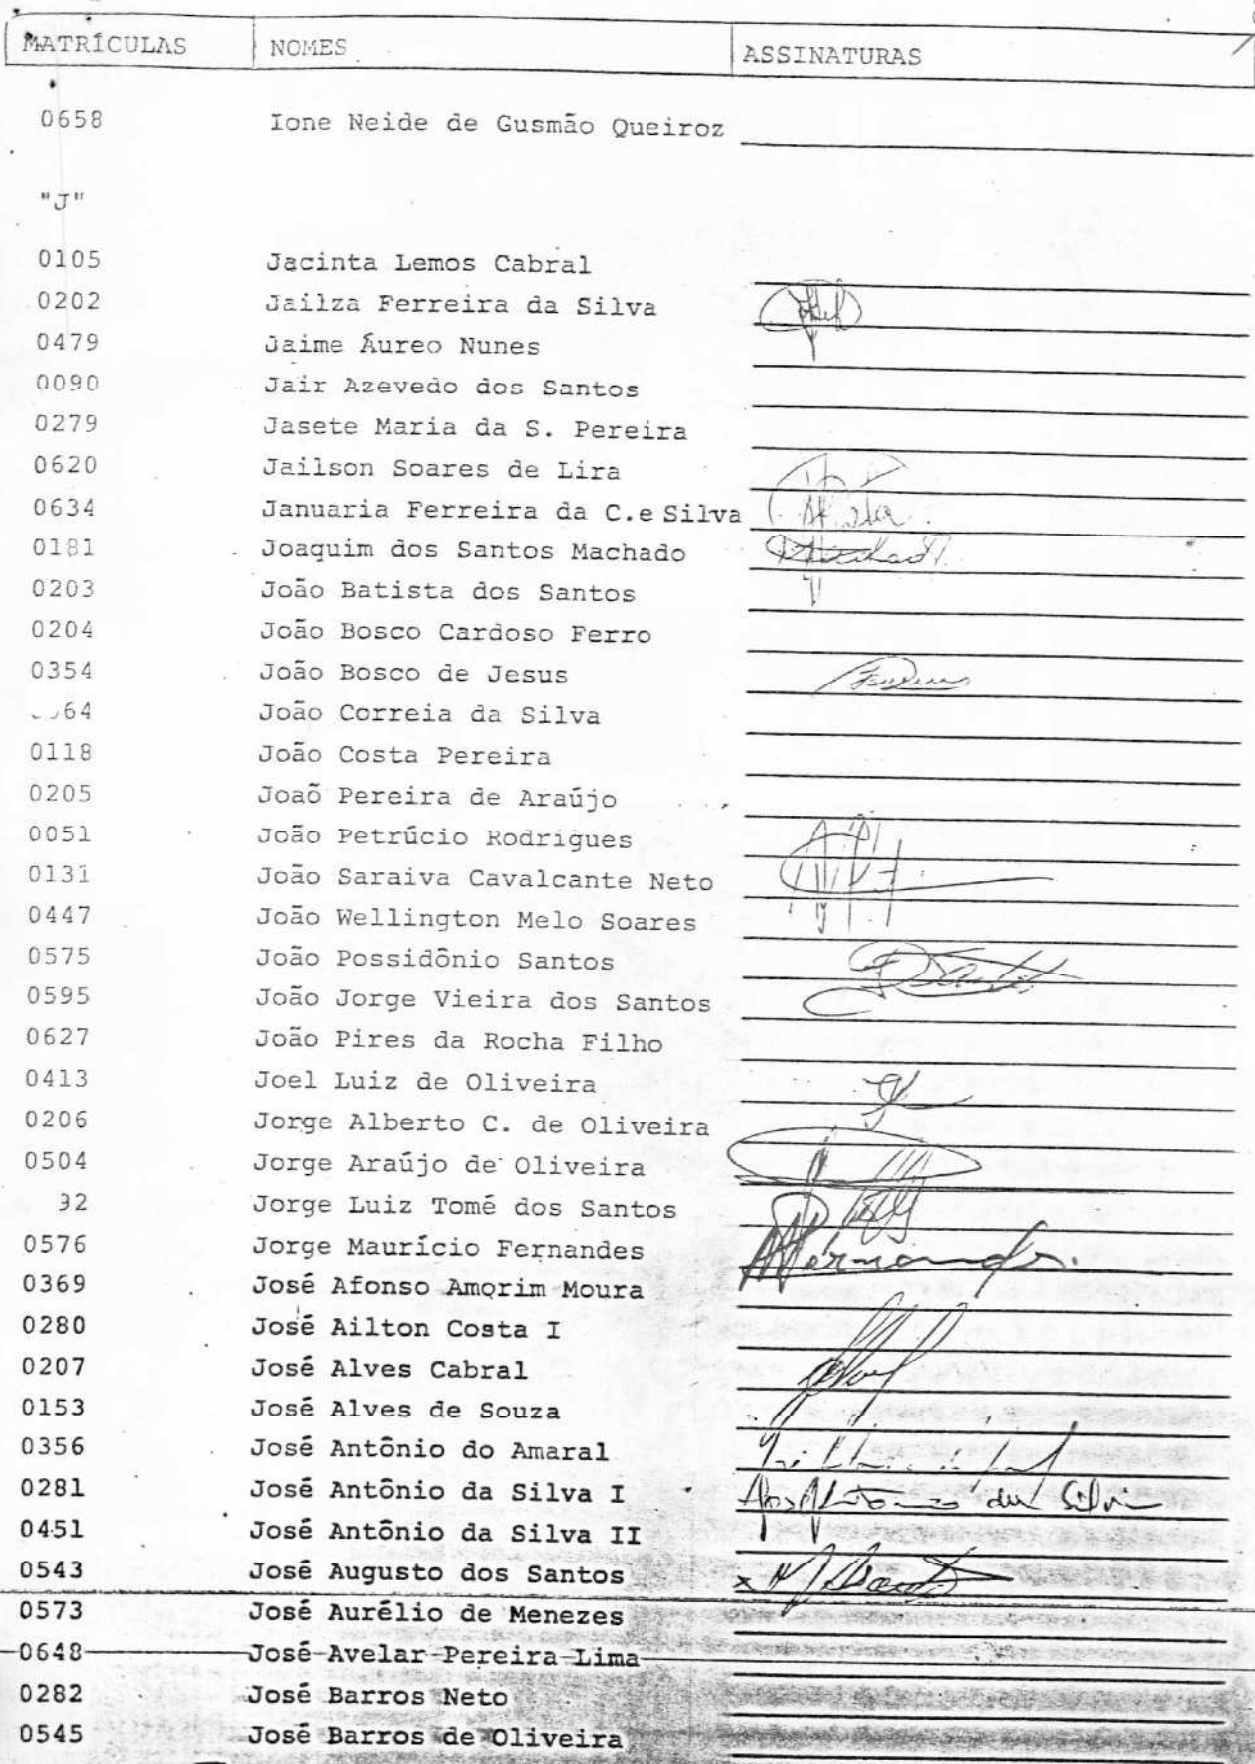 MATRÍCULAS NOMES ASSINATURAS
0658 Ione Neide de Gusmão Queiroz
"J"
0105 Jacinta Lemos Cabral
0202 Jailza Ferreira da Silva
0479 Jaime Áureo Nunes
0090 Jair Azevedo dos Santos
0279 Jasete Maria da S. Pereira
0620 Jailson Soares de Lira
0634 Januaria Ferreira da C.e Silva
0181 Joaquim dos Santos Machado
0203 João Batista dos Santos
0204 João Bosco Cardoso Ferro
0354 João Bosco de Jesus
64 João Correia da Silva
0118 João Costa Pereira
0205 Joaõ Pereira de Araújo
0051 João Petrúcio Rodrigues
0131 João Saraiva Cavalcante Neto
0447 João Wellington Melo Soares
0575 João Possidônio Santos
0595 João Jorge Vieira dos Santos
0627 João Pires da Rocha Filho
0413 Joel Luiz de Oliveira
0206 Jorge Alberto C. de Oliveira
0504 Jorge Araújo de Oliveira
92 Jorge Luiz Tomé dos Santos
0576 Jorge Maurício Fernandes
0369 José Afonso Amorim Moura
0280 José Ailton Costa I
0207 José Alves Cabral
0153 José Alves de Souza
0356 José Antônio do Amaral
0281 José Antônio da Silva I da Silva
0451 José Antônio da Silva II
0543 José Augusto dos Santos x
0573 José Aurélio de Menezes
0648 José Avelar Pereira Lima
0282 José Barros Neto
0545 José Barros de Oliveira